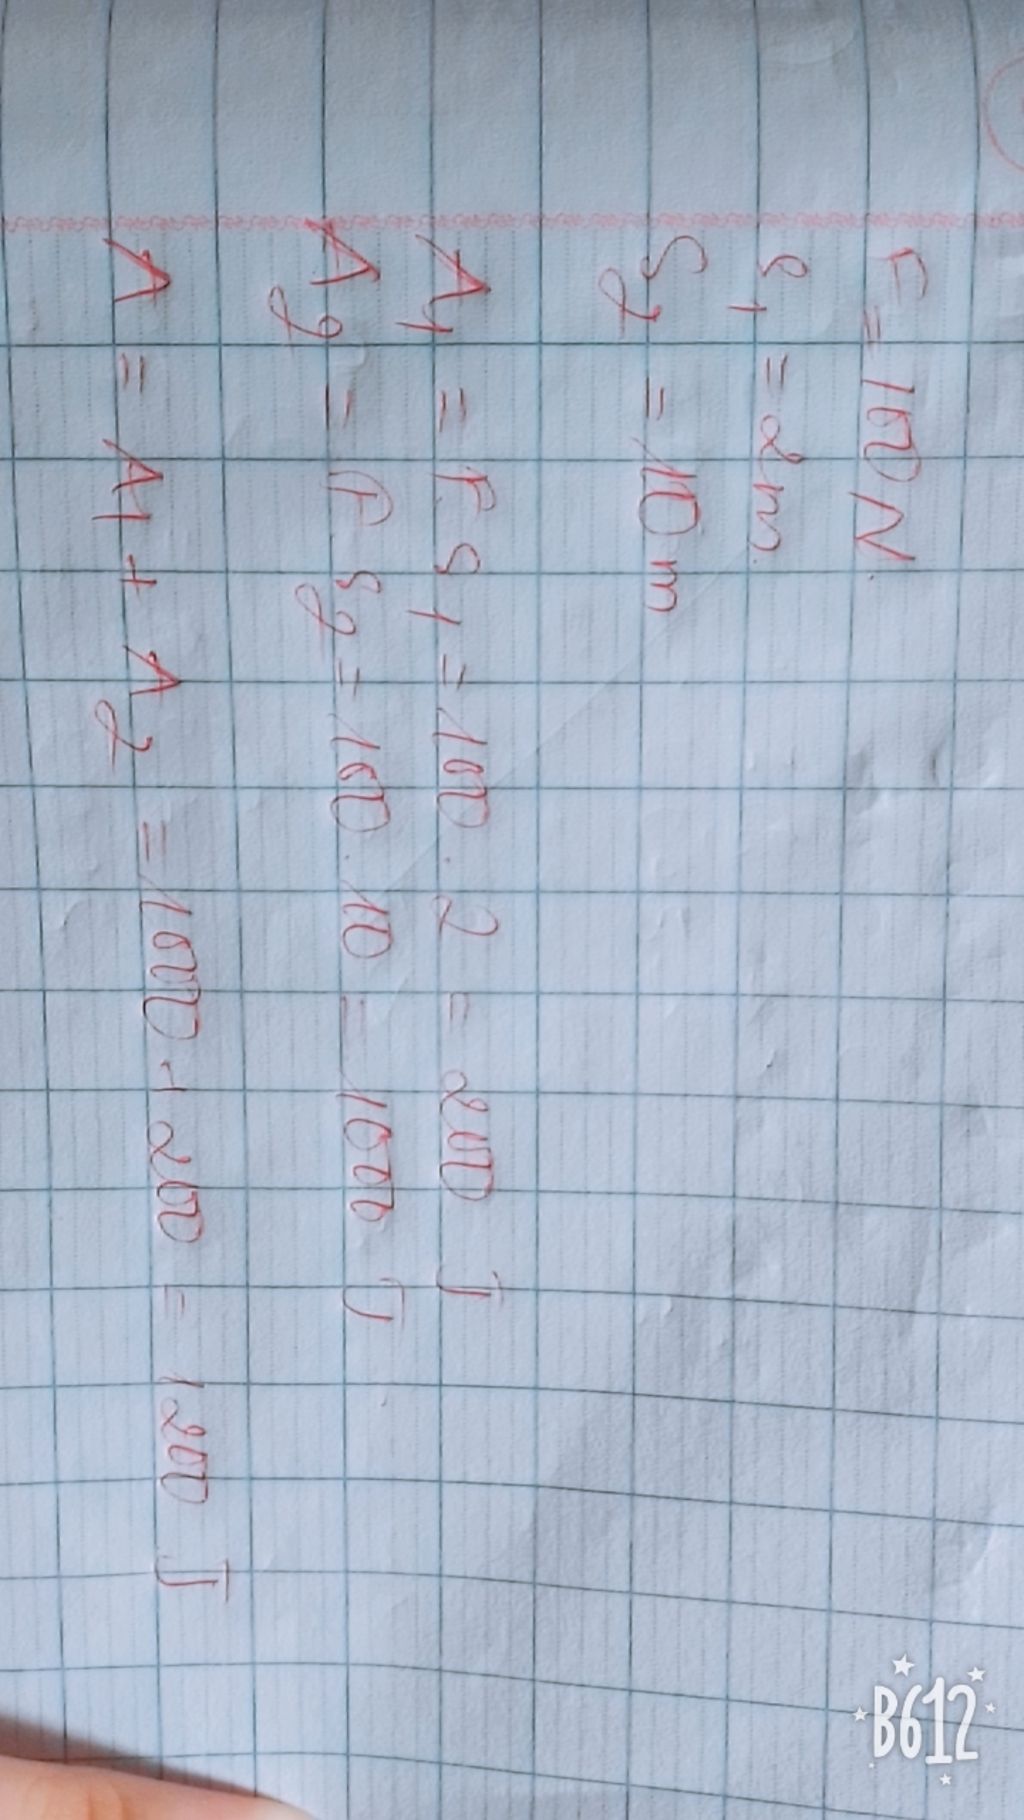 F = 100 N.
S₁ = 2m.
S₂ = 10 m
A₁ = F. S₁ = 100 . 2 = 200 J
A₂ = F. S₂ = 100 . 10 = 1000 J
A = A₁ + A₂ = 1000 + 200 = 1200 J
B612